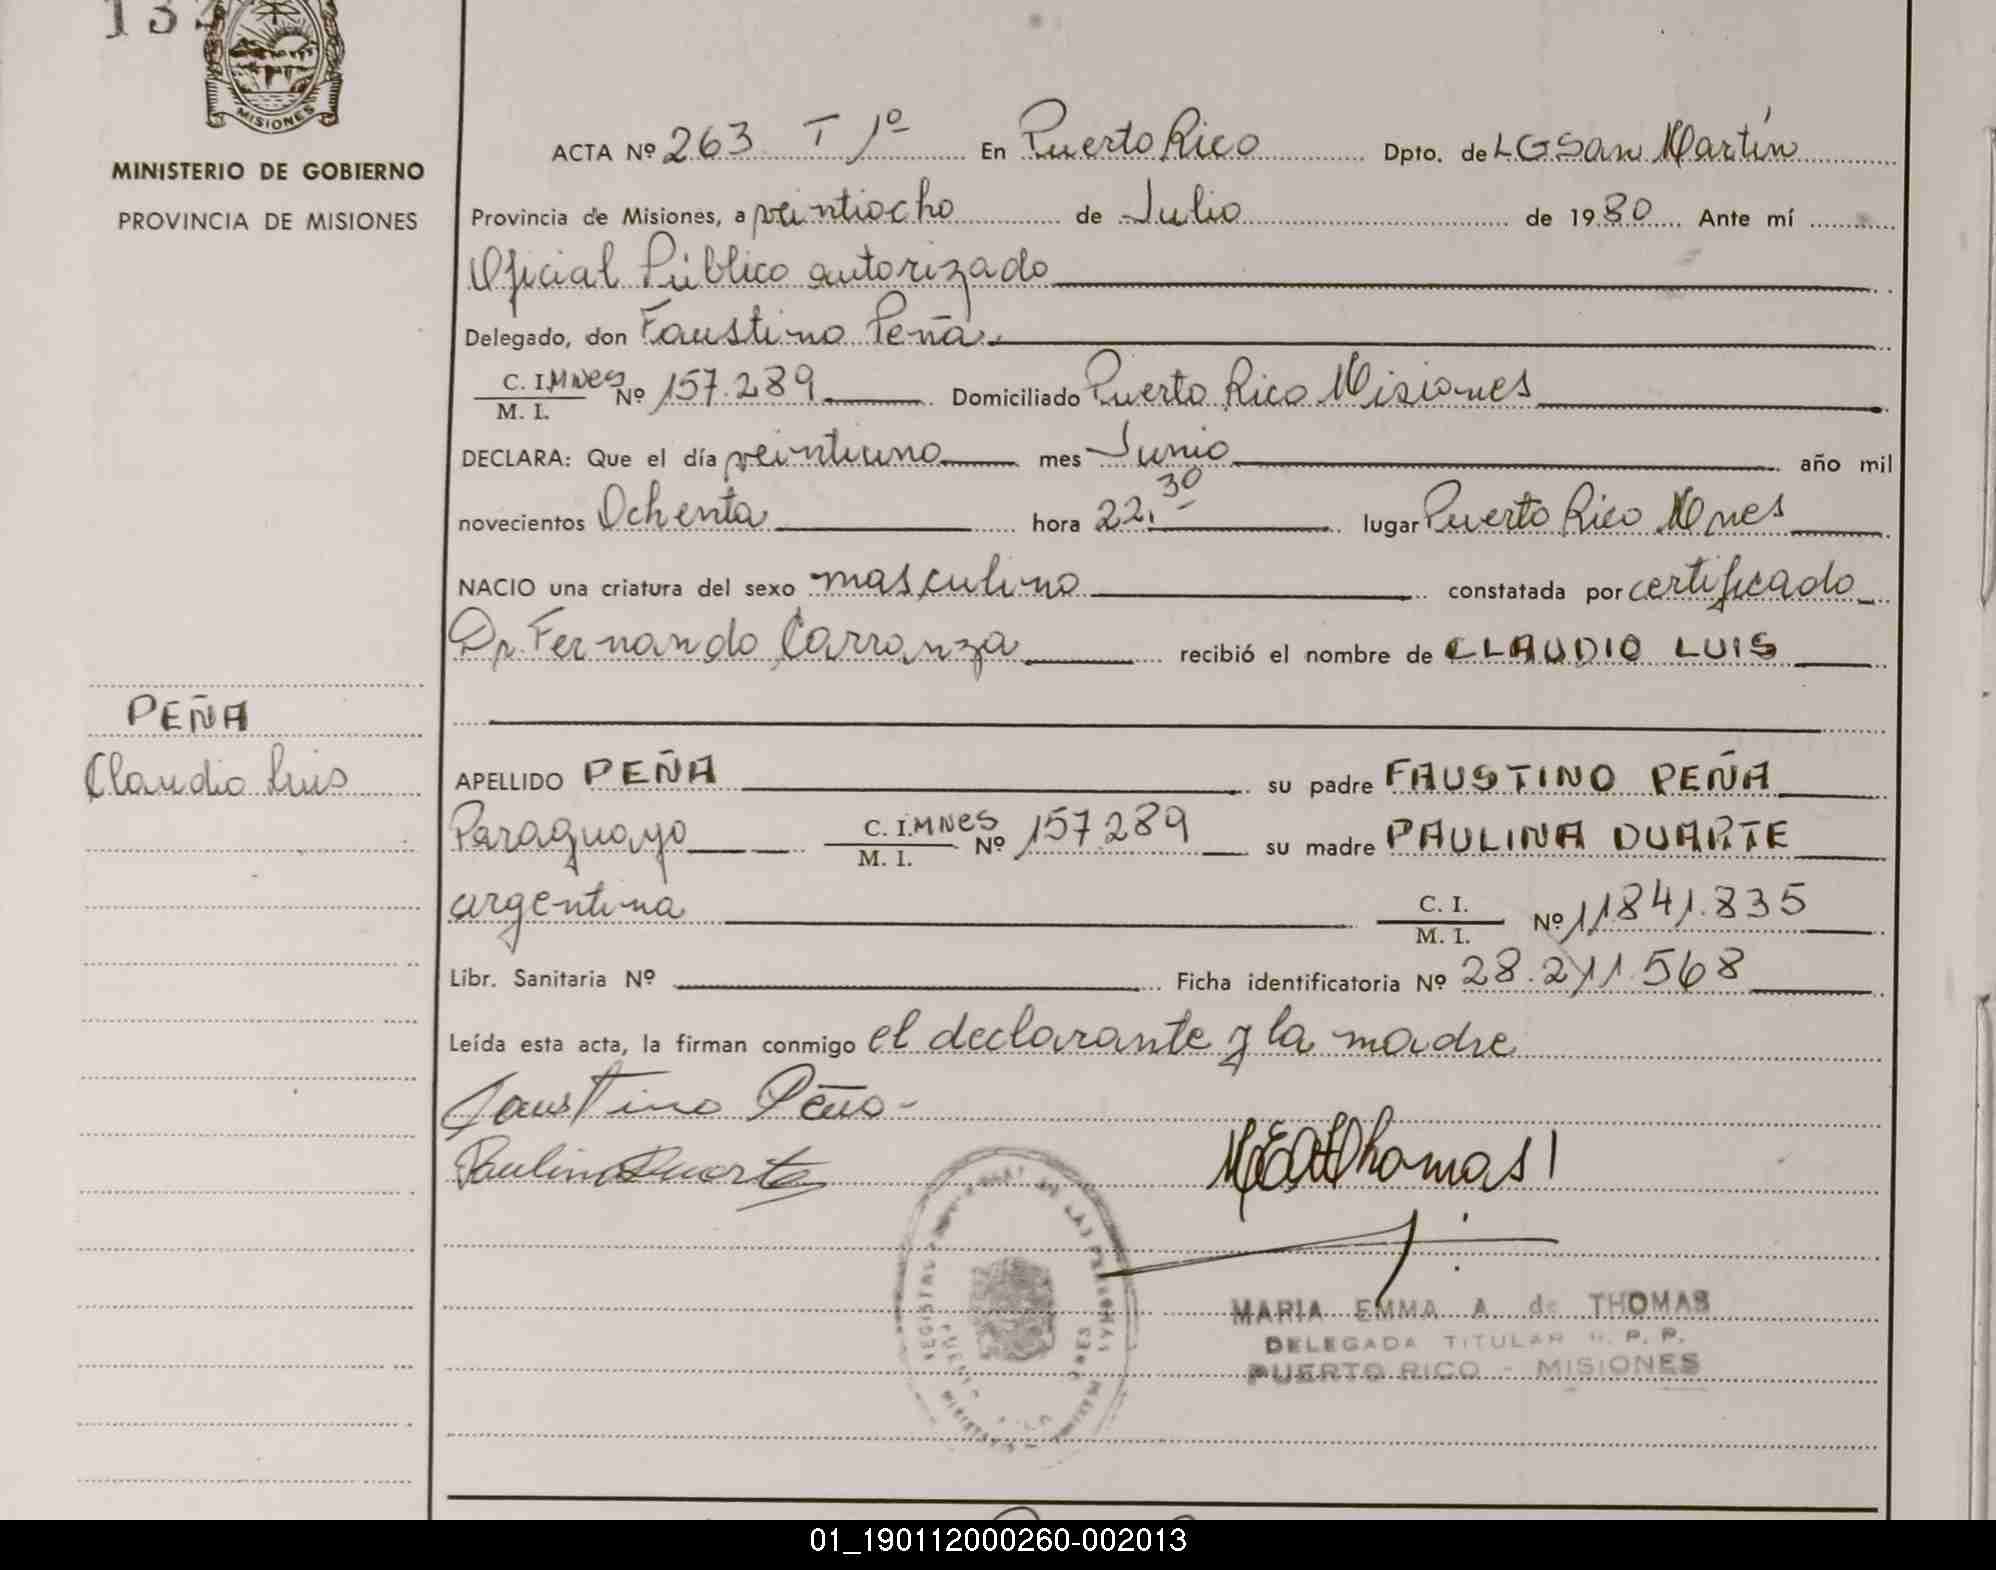 133
MISIONES
MINISTERIO DE GOBIERNO
PROVINCIA DE MISIONES
PEÑA
Claudio Luis
ACTA Nº 263 T 1º En Puerto Rico Dpto. de L G San Martín
Provincia de Misiones, a veintiocho de Julio de 1980 Ante mí
Oficial Público autorizado
Delegado, don Faustino Peña
C. I. Mnes Nº 157.289 Domiciliado Puerto Rico Misiones
M. I.
DECLARA: Que el día veintiuno mes Junio año mil
novecientos Ochenta hora 22.30 lugar Puerto Rico Mnes
NACIO una criatura del sexo masculino constatada por certificado
Dr. Fernando Carranza recibió el nombre de CLAUDIO LUIS
APELLIDO PEÑA su padre FAUSTINO PEÑA
Paraguayo C. I. MNES Nº 157.289 su madre PAULINA DUARTE
M. I.
argentina C. I. Nº 11841.835
M. I.
Libr. Sanitaria Nº Ficha identificatoria Nº 28.211.568
Leída esta acta, la firman conmigo el declarante y la madre
Faustino Peña
Paulina Duarte
MEAdThomas
MARIA EMMA A. de THOMAS
DELEGADA TITULAR R. P. P.
PUERTO RICO - MISIONES
01_190112000260-002013